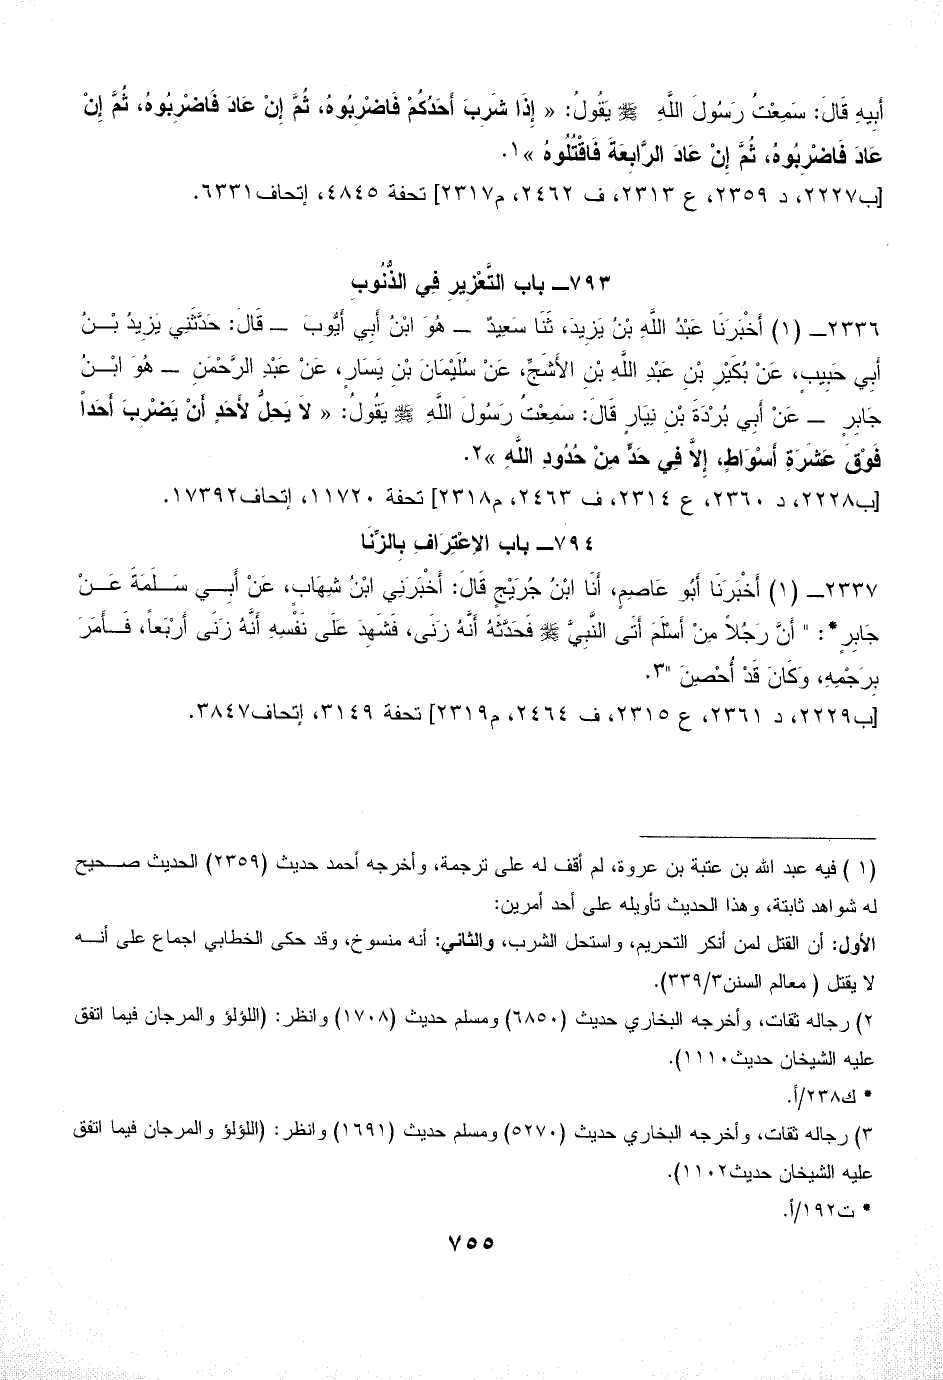 أَبِيهِ قَالَ: سَمِعْتُ رَسُولَ اللَّهِ ﷺ يَقُولُ: « إِذَا شَرِبَ أَحَدُكُمْ فَاضْرِبُوهُ، ثُمَّ إِنْ عَادَ فَاضْرِبُوهُ، ثُمَّ إِنْ
عَادَ فَاضْرِبُوهُ، ثُمَّ إِنْ عَادَ الرَّابِعَةَ فَاقْتُلُوهُ »١.
[ب٢٢٢٧، د ٢٣٥٩، ع ٢٣١٣، ف ٢٤٦٢، م٢٣١٧] تحفة ٤٨٤٥، إتحاف٦٣٣١.
٧٩٣ـ باب التَّعْزِيرِ فِي الذُّنُوبِ
٢٣٣٦ـ (١) أَخْبَرَنَا عَبْدُ اللَّهِ بْنُ يَزِيدَ، ثَنَا سَعِيدٌ ـ هُوَ ابْنُ أَبِي أَيُّوبَ ـ قَالَ: حَدَّثَنِي يَزِيدُ بْنُ
أَبِي حَبِيبٍ، عَنْ بُكَيْرِ بْنِ عَبْدِ اللَّهِ بْنِ الأَشَجِّ، عَنْ سُلَيْمَانَ بْنِ يَسَارٍ، عَنْ عَبْدِ الرَّحْمَنِ ـ هُوَ ابْنُ
جَابِرٍ ـ عَنْ أَبِي بُرْدَةَ بْنِ نِيَارٍ قَالَ: سَمِعْتُ رَسُولَ اللَّهِ ﷺ يَقُولُ: « لاَ يَحِلُّ لأَحَدٍ أَنْ يَضْرِبَ أَحَداً
فَوْقَ عَشَرَةِ أَسْوَاطٍ، إِلاَّ فِي حَدٍّ مِنْ حُدُودِ اللَّهِ »٢.
[ب٢٢٢٨، د ٢٣٦٠، ع ٢٣١٤، ف ٢٤٦٣، م٢٣١٨] تحفة ١١٧٢٠، إتحاف١٧٣٩٢.
٧٩٤ـ باب الاِعْتِرَافِ بِالزِّنَا
٢٣٣٧ـ (١) أَخْبَرَنَا أَبُو عَاصِمٍ، أَنَا ابْنُ جُرَيْجٍ قَالَ: أَخْبَرَنِي ابْنُ شِهَابٍ، عَنْ أَبِي سَلَمَةَ عَنْ
جَابِرٍ*: " أَنَّ رَجُلاً مِنْ أَسْلَمَ أَتَى النَّبِيَّ ﷺ فَحَدَّثَهُ أَنَّهُ زَنَى، فَشَهِدَ عَلَى نَفْسِهِ أَنَّهُ زَنَى أَرْبَعاً، فَأَمَرَ
بِرَجْمِهِ، وَكَانَ قَدْ أُحْصِنَ "٣.
[ب٢٢٢٩، د ٢٣٦١، ع ٢٣١٥، ف ٢٤٦٤، م٢٣١٩] تحفة ٣١٤٩، إتحاف٣٨٤٧.
(١ ) فيه عبد الله بن عتبة بن عروة، لم أقف له على ترجمة، وأخرجه أحمد حديث (٢٣٥٩) الحديث صحيح
له شواهد ثابتة، وهذا الحديث تأويله على أحد أمرين:
الأول: أن القتل لمن أنكر التحريم، واستحل الشرب، والثاني: أنه منسوخ، وقد حكى الخطابي اجماع على أنه
لا يقتل ( معالم السنن٣٣٩/٣).
٢) رجاله ثقات، وأخرجه البخاري حديث (٦٨٥٠) ومسلم حديث (١٧٠٨) وانظر: (اللؤلؤ والمرجان فيما اتفق
عليه الشيخان حديث١١١٠).
* ك٢٣٨/أ.
٣) رجاله ثقات، وأخرجه البخاري حديث (٥٢٧٠) ومسلم حديث (١٦٩١) وانظر: (اللؤلؤ والمرجان فيما اتفق
عليه الشيخان حديث١١٠٢).
* ت١٩٢/أ.
٧٥٥